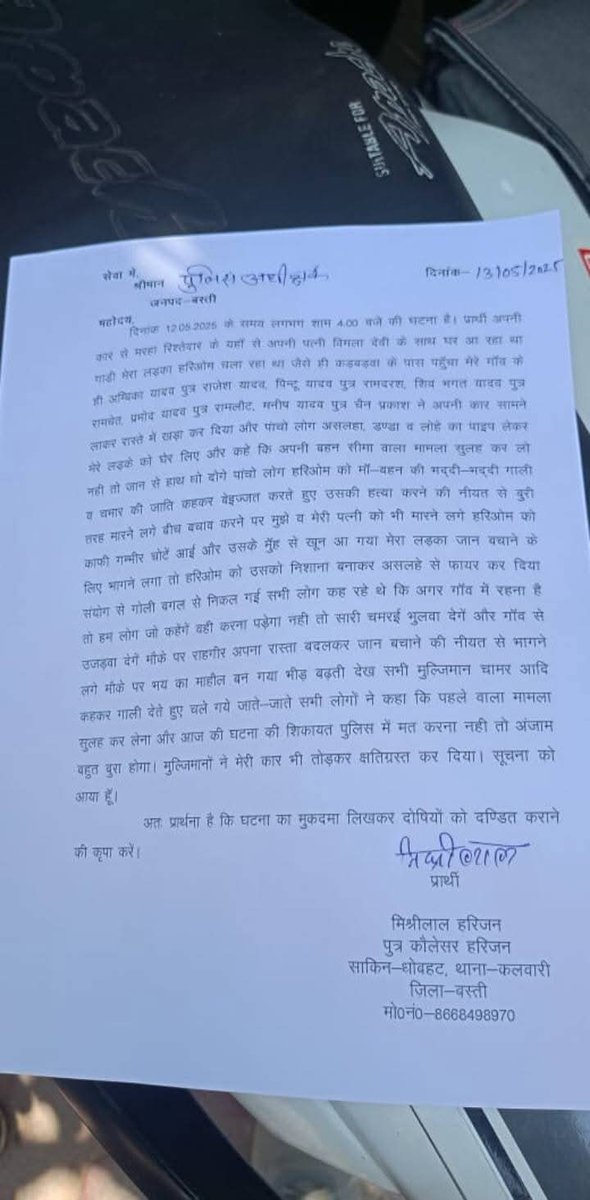 SUITABLE FOR
सेवा में,
श्रीमान पुलिस अधीक्षक
दिनांक- 13/05/2025
जनपद–बस्ती
महोदय,
दिनांक 12.05.2025 के समय लगभग शाम 4.00 बजे की घटना है। प्रार्थी अपनी
कार से मरहा रिश्तेदार के यहाँ से अपनी पत्नी विमला देवी के साथ घर आ रहा था
गाड़ी मेरा लड़का हरिओम चला रहा था जैसे ही कड़बड़वा के पास पहुँचा मेरे गाँव के
ही अम्बिका यादव पुत्र राजेश यादव, पिन्टू यादव पुत्र रामदरश, शिव भगत यादव पुत्र
रामचेत, प्रमोद यादव पुत्र रामलौट, मनीष यादव पुत्र चैन प्रकाश ने अपनी कार सामने
लाकर रास्ते में खड़ा कर दिया और पांचो लोग असलहा, डण्डा व लोहे का पाइप लेकर
मेरे लड़के को घेर लिए और कहे कि अपनी बहन सीमा वाला मामला सुलह कर लो
नही तो जान से हाथ धो दोगे पांचो लोग हरिओम को माँ–बहन की भद्दी–भद्दी गाली
व चमार की जाति कहकर बेइज्जत करते हुए उसकी हत्या करने की नीयत से बुरी
तरह मारने लगे बीच बचाव करने पर मुझे व मेरी पत्नी को भी मारने लगे हरिओम को
काफी गम्भीर चोटें आई और उसके मुँह से खून आ गया मेरा लड़का जान बचाने के
लिए भागने लगा तो हरिओम को उसको निशाना बनाकर असलहे से फायर कर दिया
संयोग से गोली बगल से निकल गई सभी लोग कह रहे थे कि अगर गाँव में रहना है
तो हम लोग जो कहेंगें वही करना पड़ेगा नही तो सारी चमरई भुलवा देगें और गाँव से
उजड़वा देगें मौके पर राहगीर अपना रास्ता बदलकर जान बचाने की नीयत से भागने
लगे मौके पर भय का माहौल बन गया भीड़ बढ़ती देख सभी मुल्जिमान चामर आदि
कहकर गाली देते हुए चले गये जाते–जाते सभी लोगों ने कहा कि पहले वाला मामला
सुलह कर लेना और आज की घटना की शिकायत पुलिस में मत करना नही तो अंजाम
बहुत बुरा होगा। मुल्जिमानों ने मेरी कार भी तोड़कर क्षतिग्रस्त कर दिया। सूचना को
आया हूँ।
अतः प्रार्थना है कि घटना का मुकदमा लिखकर दोषियों को दण्डित कराने
की कृपा करें।
मिश्रीलाल
प्रार्थी
मिश्रीलाल हरिजन
पुत्र कौलेसर हरिजन
साकिन–धोबहट, थाना–कलवारी
ज़िला–बस्ती
मो0नं0–8668498970